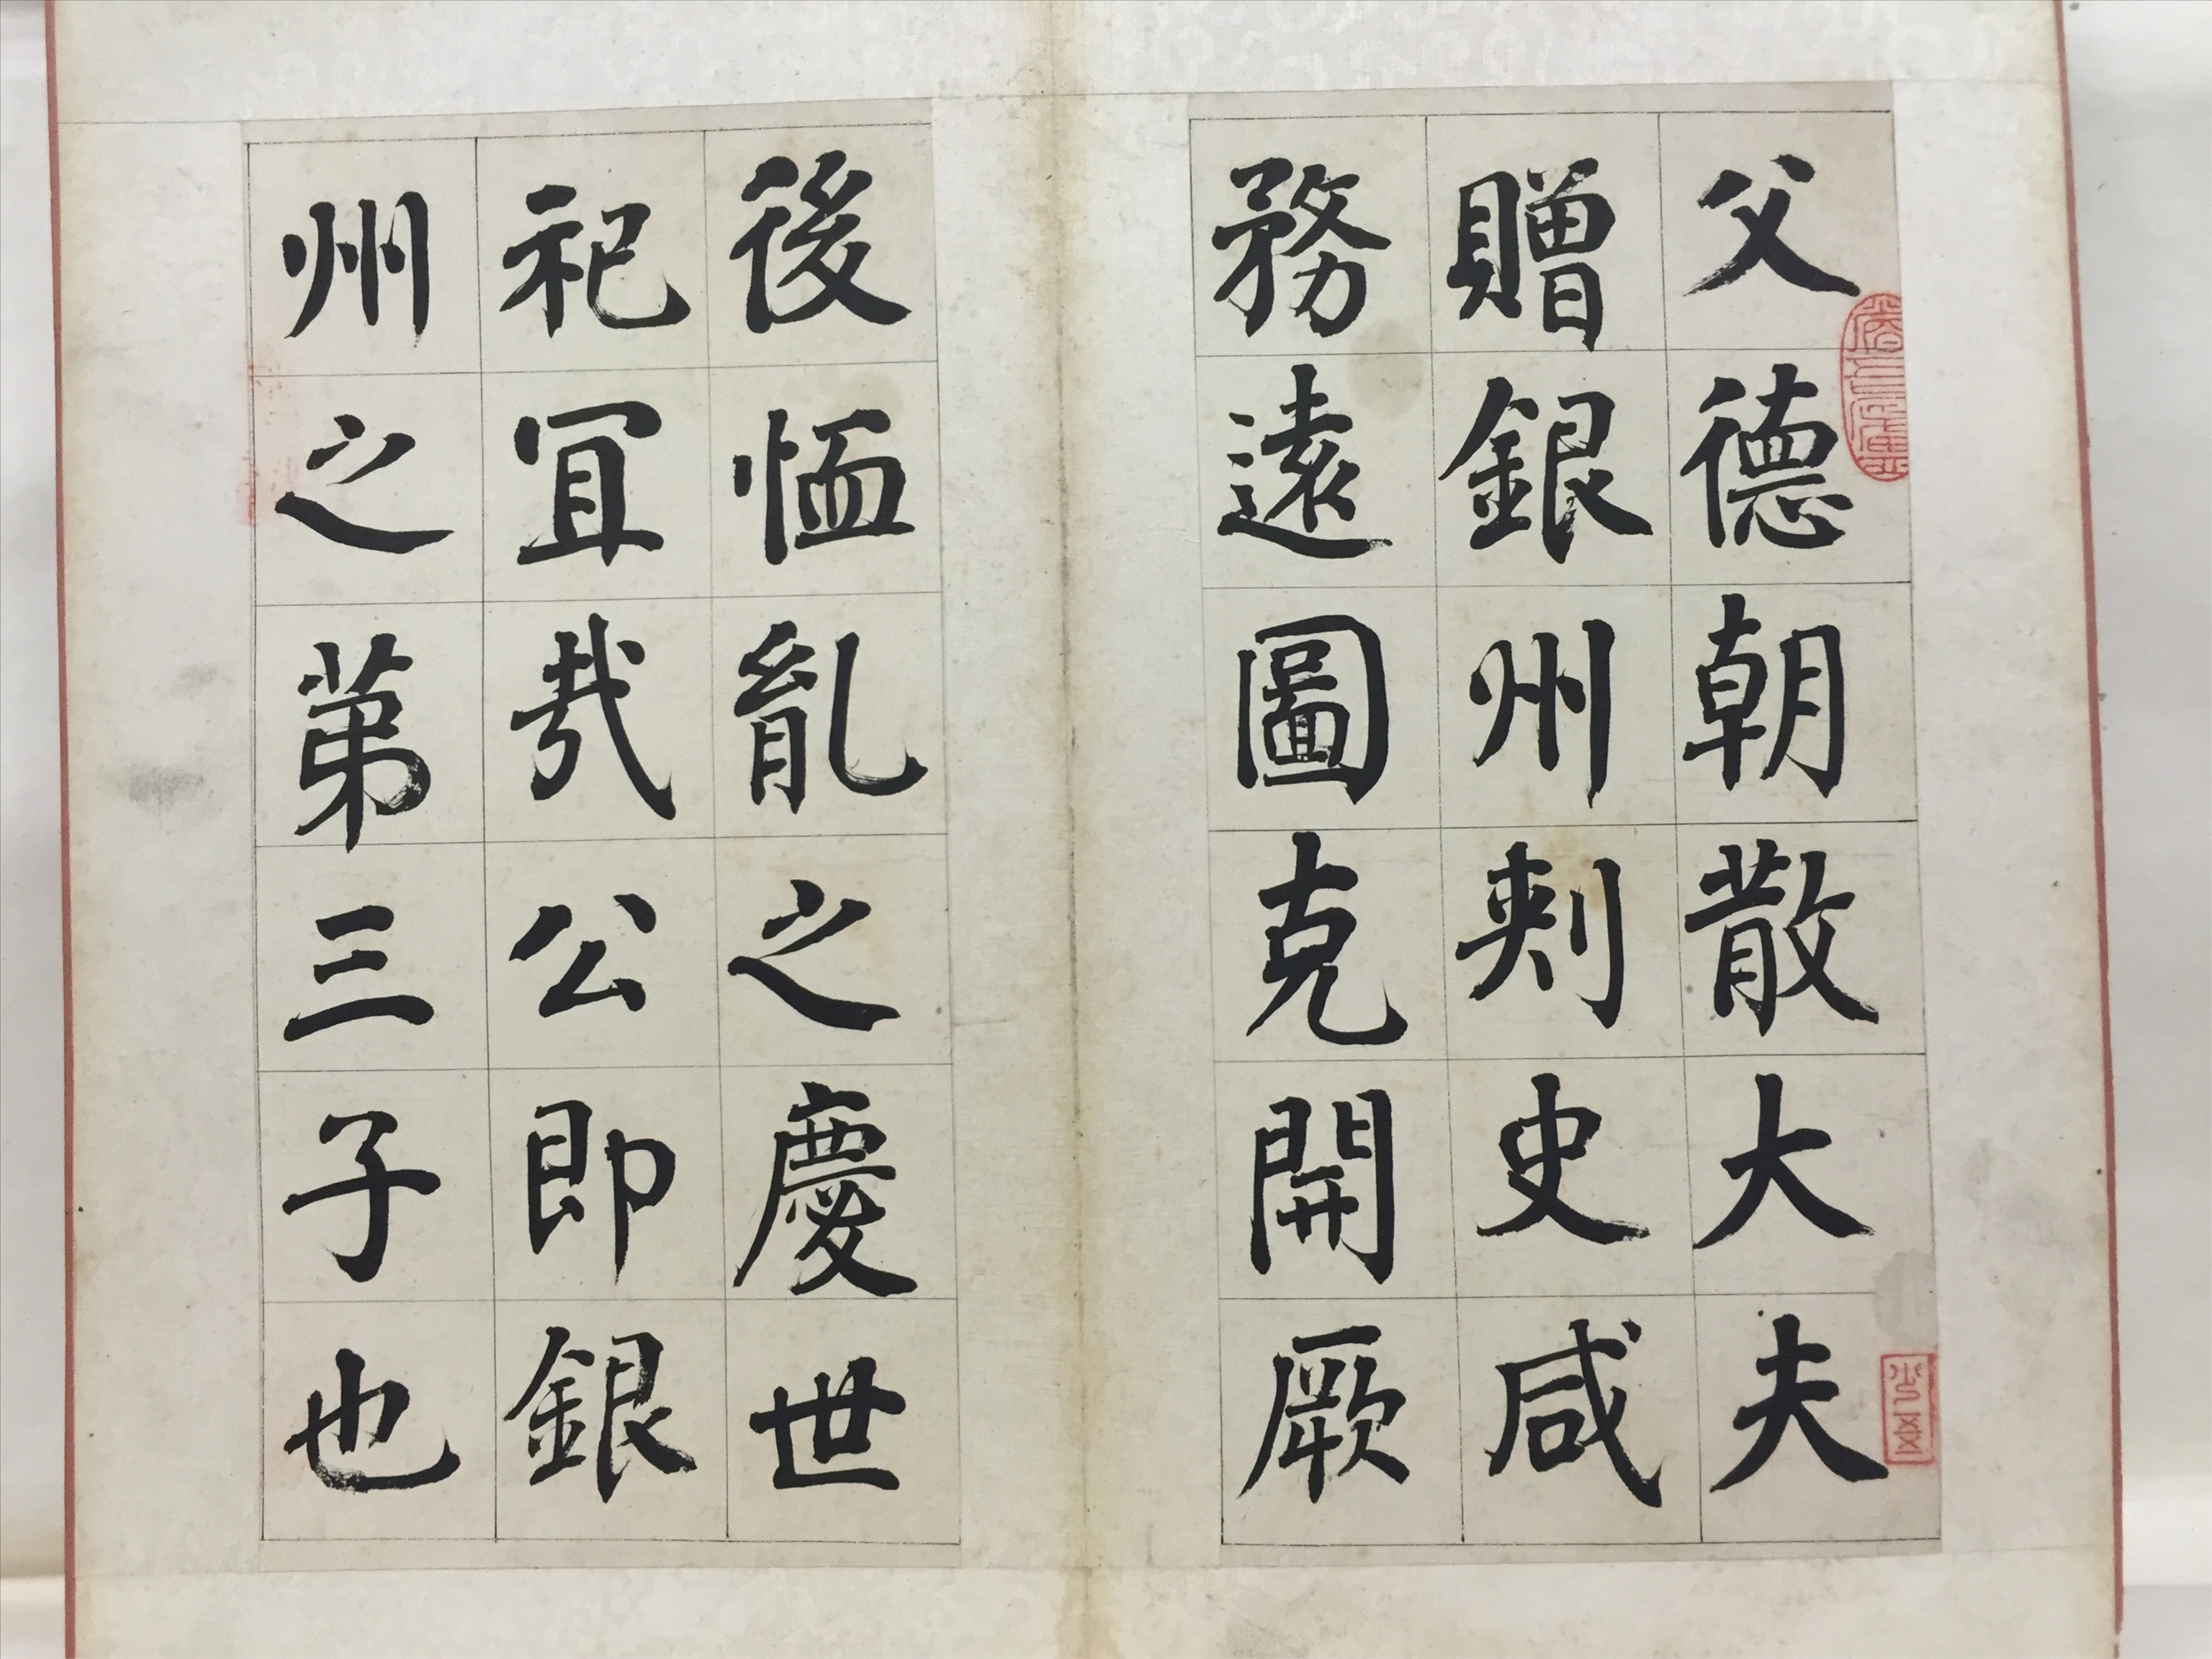 父德朝散大夫
贈銀州刺史咸
務遠圖克開厥
後恤胤之慶世
祀宜哉公即銀
州之第三子也